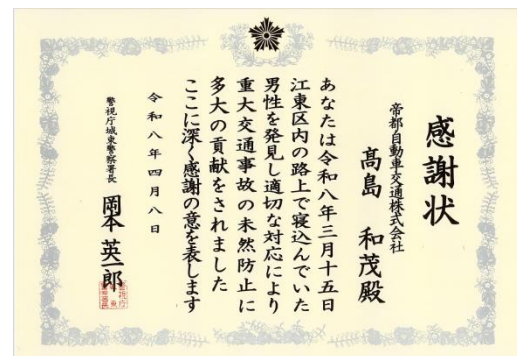 感謝状
帝都自動車交通株式会社
髙島 和茂殿
あなたは令和八年三月十五日
江東区内の路上で寝込んでいた
男性を発見し適切な対応により
重大交通事故の未然防止に
多大の貢献をされました
ここに深く感謝の意を表します
令和八年四月八日
警視庁城東警察署長 岡本 英一郎